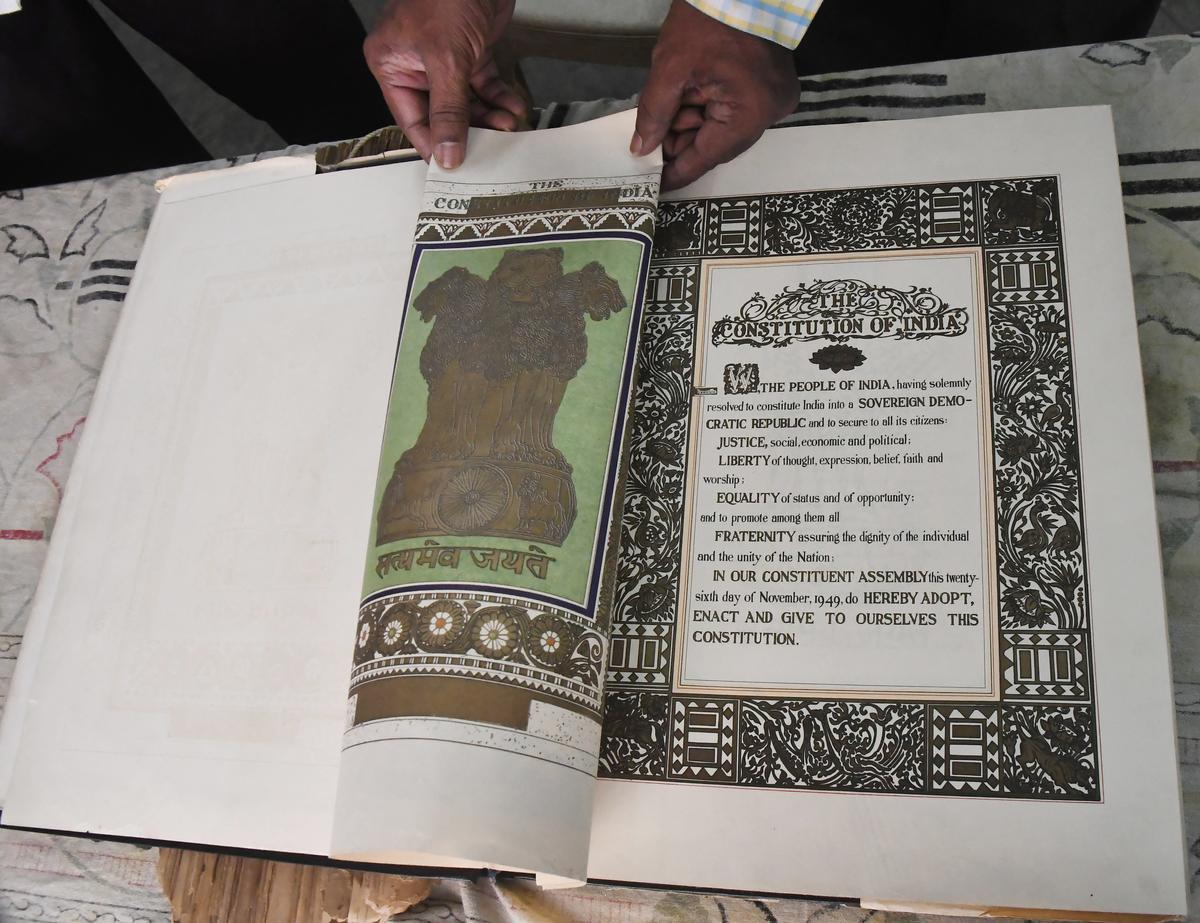 THE
CONSTITUTION OF INDIA
सत्यमेव जयते
THE
CONSTITUTION OF INDIA
WE, THE PEOPLE OF INDIA, having solemnly
resolved to constitute India into a SOVEREIGN DEMO-
CRATIC REPUBLIC and to secure to all its citizens:
JUSTICE, social, economic and political;
LIBERTY of thought, expression, belief, faith and
worship;
EQUALITY of status and of opportunity;
and to promote among them all
FRATERNITY assuring the dignity of the individual
and the unity of the Nation;
IN OUR CONSTITUENT ASSEMBLY this twenty-
sixth day of November, 1949, do HEREBY ADOPT,
ENACT AND GIVE TO OURSELVES THIS
CONSTITUTION.